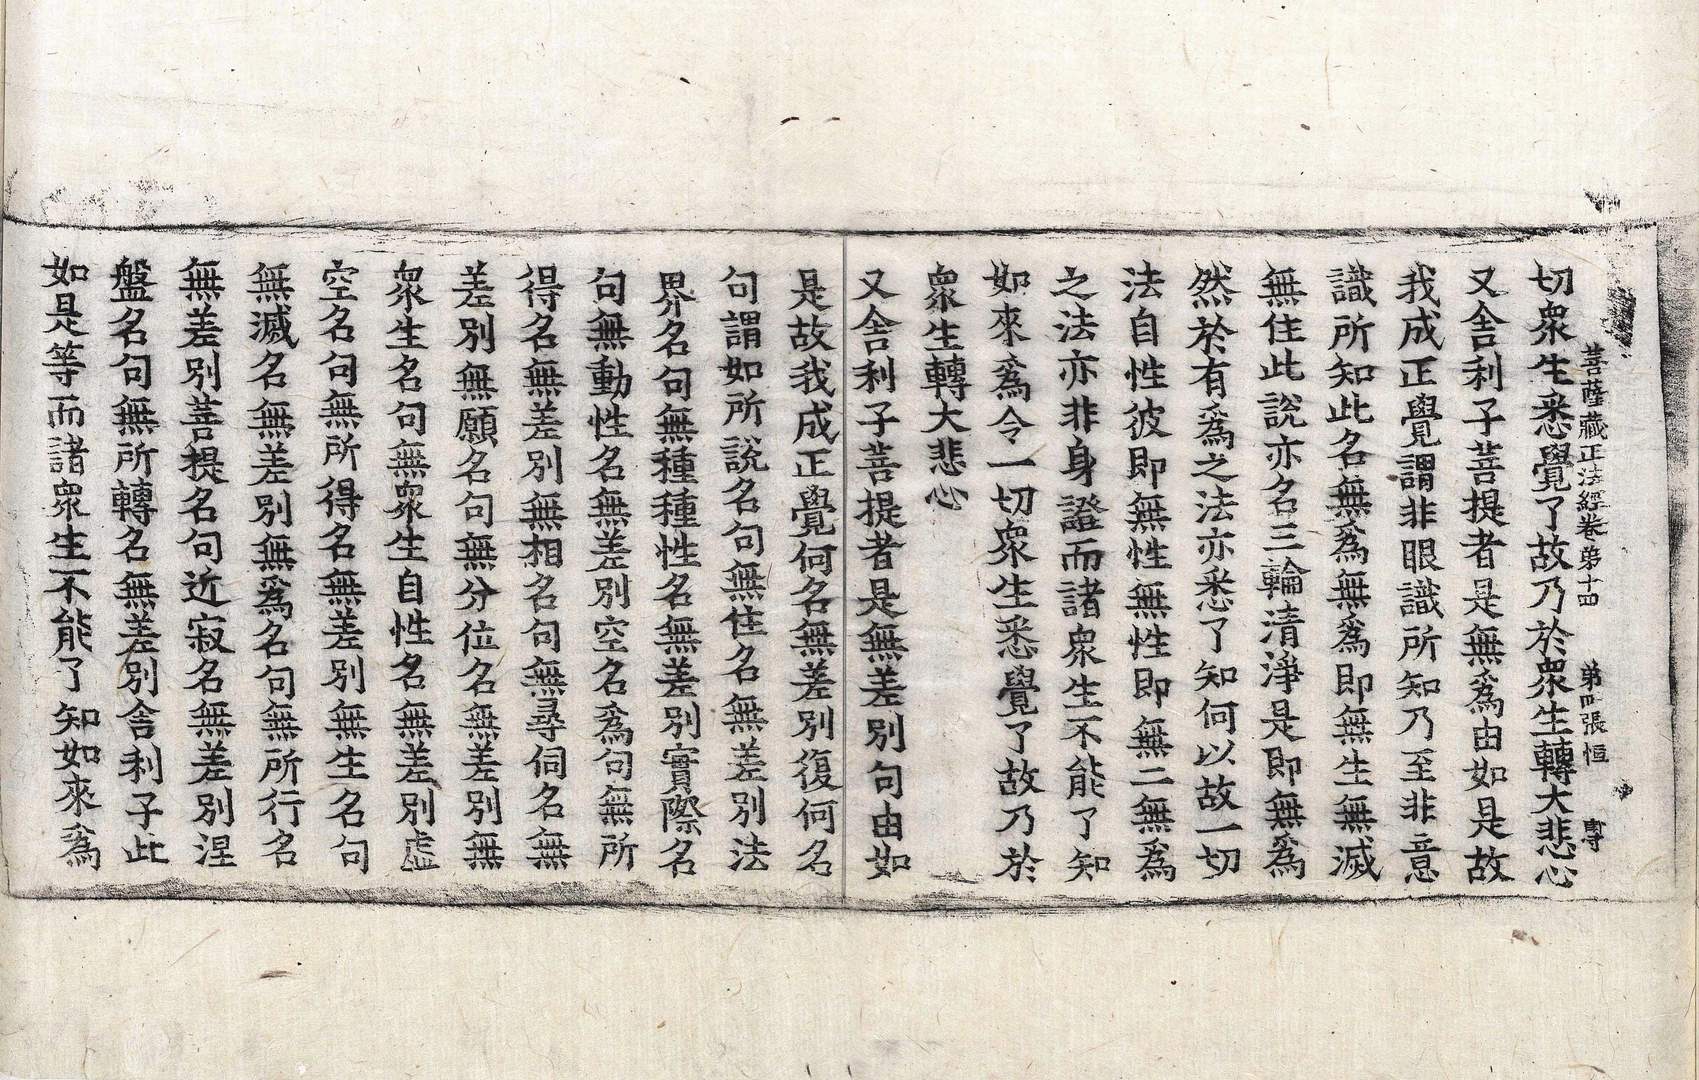 菩薩藏正法經卷第十四 第四張 恒 尊
切衆生悉覺了故乃於衆生轉大悲心
又舍利子菩提者是無爲由如是故
我成正覺謂非眼識所知乃至非意
識所知此名無爲無爲即無生無滅
無住此說亦名三輪清淨是即無爲
然於有爲之法亦悉了知何以故一切
法自性彼即無性無性即無二無爲
之法亦非身證而諸衆生不能了知
如來爲令一切衆生悉覺了故乃於
衆生轉大悲心
又舍利子菩提者是無差別句由如
是故我成正覺何名無差別復何名
句謂如所說名句無住名無差別法
界名句無種種性名無差別實際名
句無動性名無差別空名爲句無所
得名無差別無相名句無尋伺名無
差別無願名句無分位名無差別無
衆生名句無衆生自性名無差別虛
空名句無所得名無差別無生名句
無滅名無差別無爲名句無所行名
無差別菩提名句近寂名無差別涅
盤名句無所轉名無差別舍利子此
如是等而諸衆生不能了知如來爲